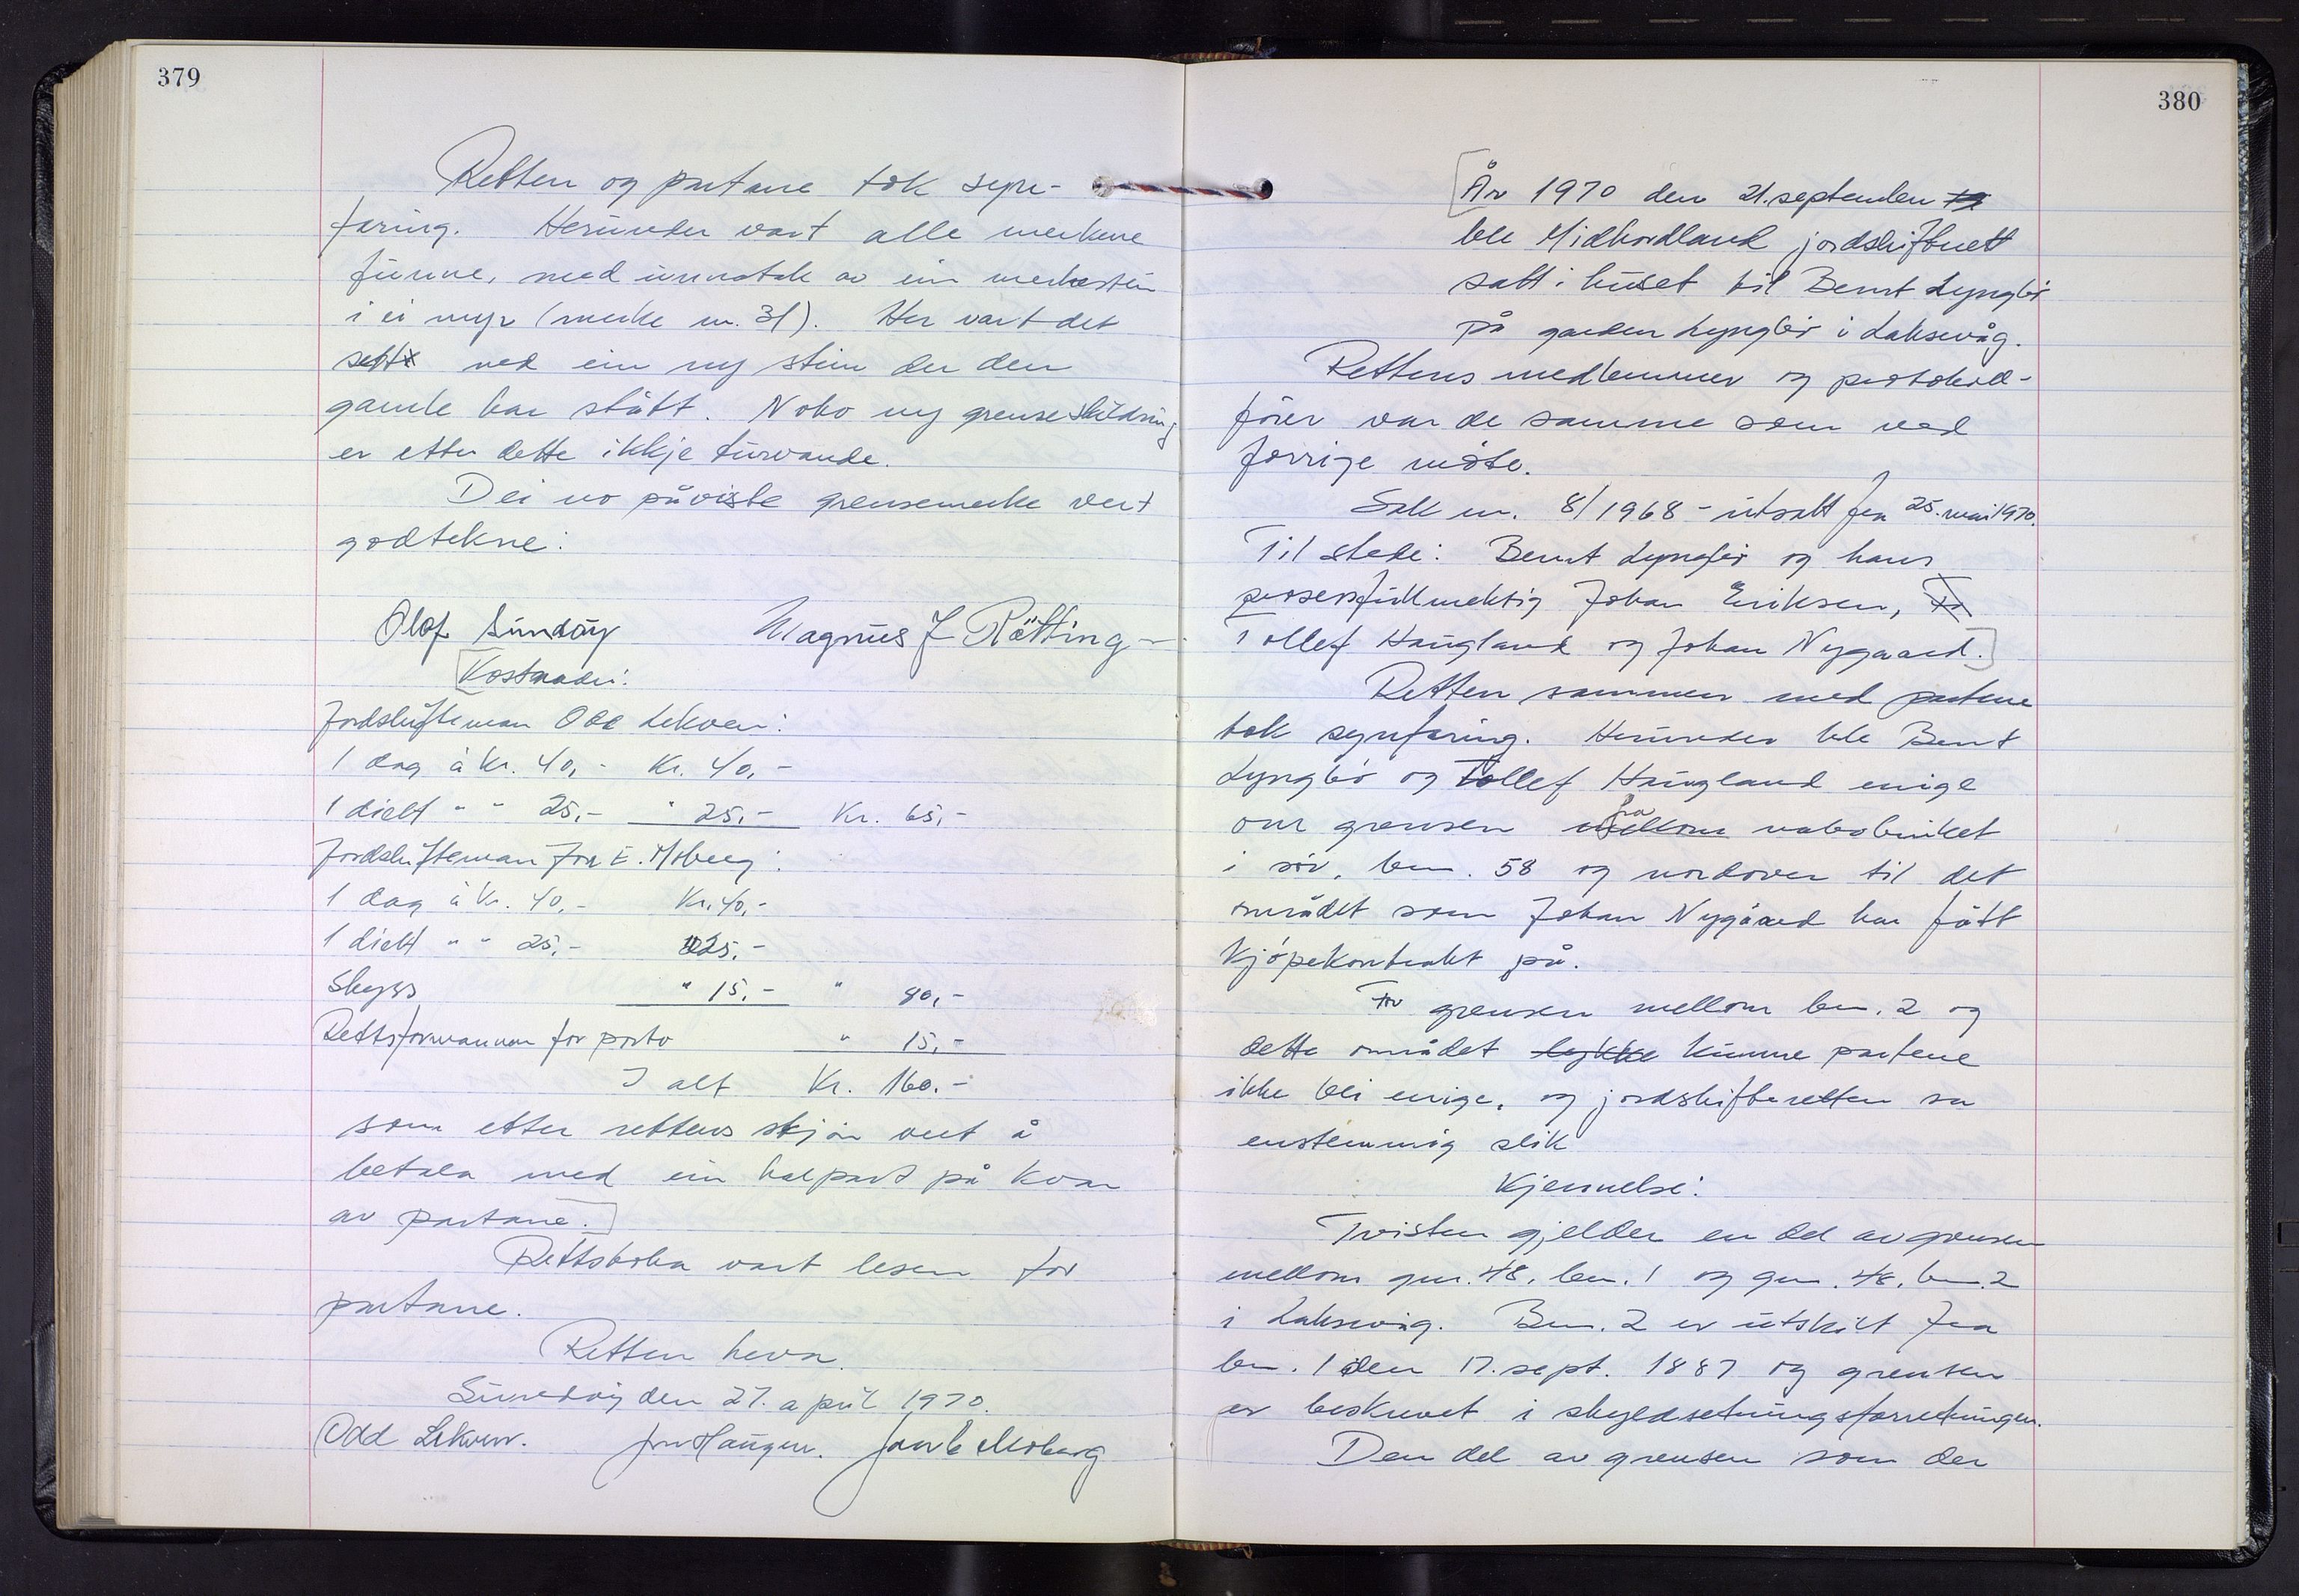 379
Retten og partane tok syn-
faring. Herunder vart alle merkene
funne, med unnatak av ein merkestein
i ei myr (merke nr. 31). Her vart det
sett ned ein ny stein der den
gamle har stått. Noko ny grenseskildring
er etter dette ikkje turvande.
Dei no påviste grensemerke vert
godtekne:
Olof Sundøy Magnus J Rötting
[Kostnader:
Jordskifteman Odd Lekven:
1 dag à kr. 40,- Kr. 40,-
1 diett " " 25,- " 25,- Kr. 65,-
Jordskiftemann Jon E. Moberg:
1 dag à kr. 40,- Kr. 40,-
1 diett " " 25,- " 25,-
Skyss " 15,- " 80,-
Rettsformannen for porto " 15,-
I alt Kr. 160.-
som etter rettens skjön vert å
betala med ein halpart på kvar
av partane.]
Rettsboka vart lesen for
partane.
Retten heva.
Sundøy den 27. april 1970.
Odd Lekven. Jon Haugen. Jon E Moberg
380
[År 1970 den 21. september
ble Midhordland jordskifterett
satt i huset til Bernt Lyngbö
på garden Lyngbö i Laksevåg.
Rettens medlemmer og protokoll-
förer var de samme som ved
forrige möte.
Sak nr. 8/1968 - utsatt fra 25. mai 1970.
Til stede: Bernt Lyngbö og hans
prosessfullmektig Johan Eriksen,
Tollef Haugland og Johan Nygaard.]
Retten sammen med partene
tok synfaring. Herunder ble Bernt
Lyngbö og Tollef Haugland enige
om grensen mellom fra nabobruket
i sör, bnr. 58 og nordover til det
området som Johan Nygaard har fått
kjöpekontrakt på.
Om grensen mellom bnr. 2 og
dette området kunne partene
ikke bli enige, og jordskifteretten sa
enstemmig slik
Kjennelse:
Tvisten gjelder en del av grensen
mellom gnr. 48, bnr. 1 og gnr. 48, bnr. 2
i Laksevåg. Bnr. 2 er utskilt fra
bnr. 1 den 17. sept. 1887 og grensen
er beskrevet i skyldsetningsforretningen.
Den del av grensen som der